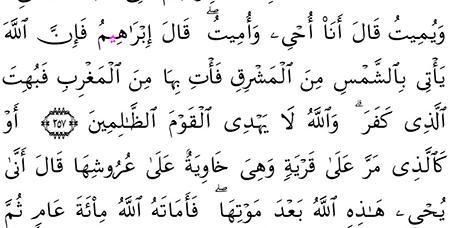 وَيُمِيتُ قَالَ أَنَا۠ أُحْيِۦ وَأُمِيتُۖ قَالَ إِبْرَٰهِـۧمُ فَإِنَّ ٱللَّهَ
يَأْتِى بِٱلشَّمْسِ مِنَ ٱلْمَشْرِقِ فَأْتِ بِهَا مِنَ ٱلْمَغْرِبِ فَبُهِتَ
ٱلَّذِى كَفَرَۗ وَٱللَّهُ لَا يَهْدِى ٱلْقَوْمَ ٱلظَّٰلِمِينَ ﴿٢٥٧﴾ أَوْ
كَٱلَّذِى مَرَّ عَلَىٰ قَرْيَةٍ وَهِىَ خَاوِيَةٌ عَلَىٰ عُرُوشِهَا قَالَ أَنَّىٰ
يُحْيِۦ هَٰذِهِ ٱللَّهُ بَعْدَ مَوْتِهَاۖ فَأَمَاتَهُ ٱللَّهُ مِا۟ئَةَ عَامٍ ثُمَّ